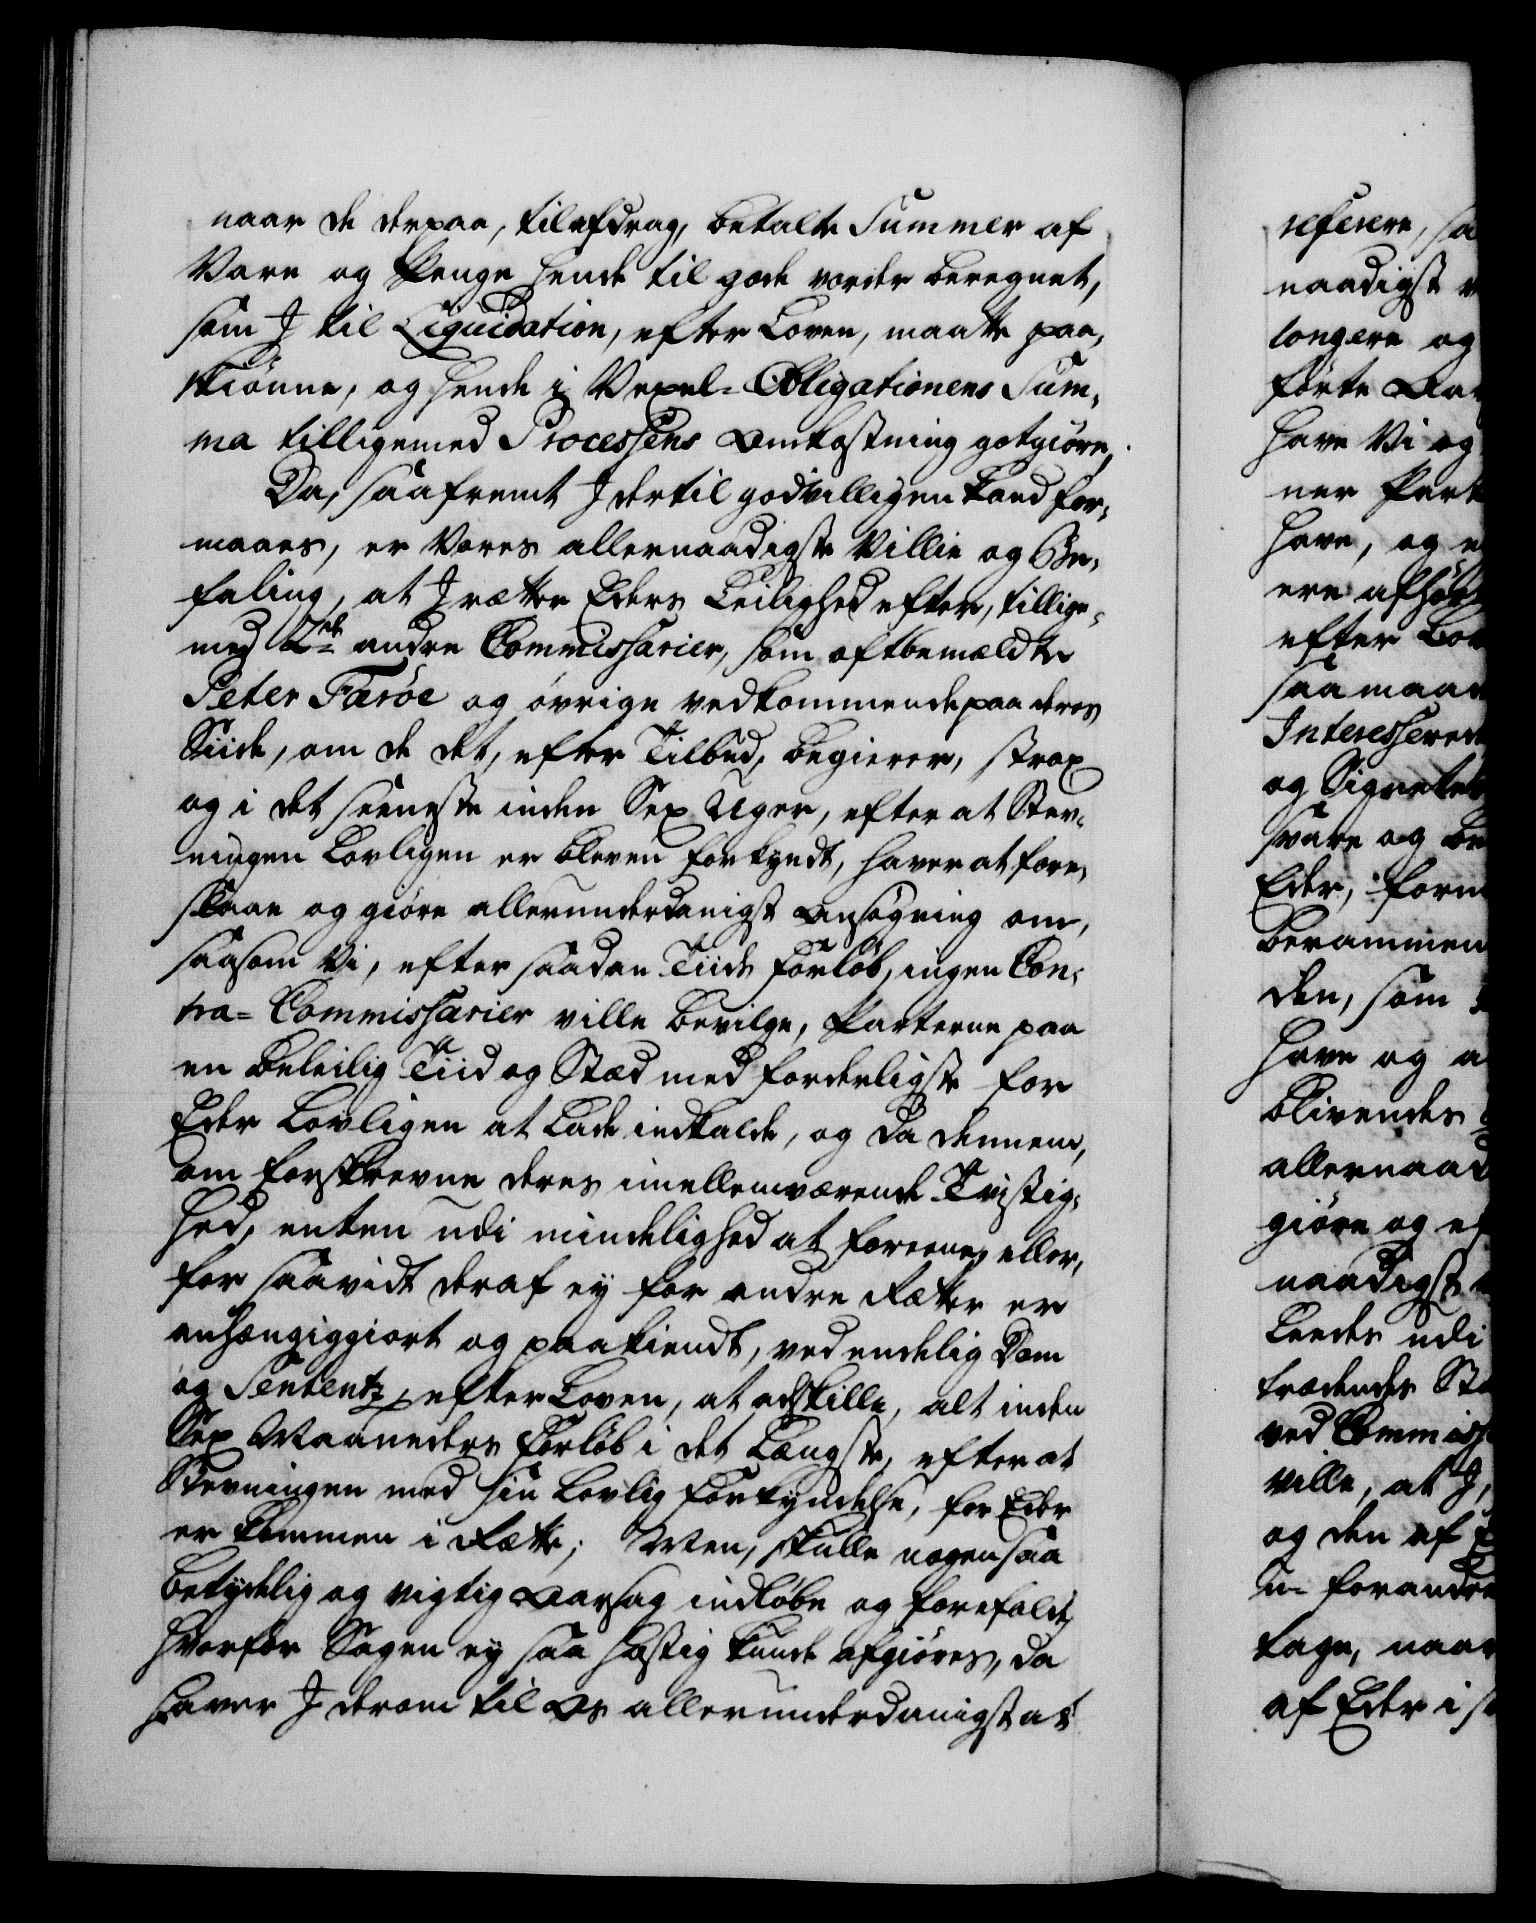 naar de derpaa, til afdrag, betalte Summer af
Vare og Penge hende til gode vorder beregnet,
som I til Liquidation, efter Loven, maatte paa,
skiönne, og hende i Vexel-Obligationens Sum,
ma tilligemed Processens Omkostning gotgiöre,
Da, saafremt I dertil godvilligen kand for,
maaes, er Vores allernaadigste Villie og Be,
faling, at I rætter Eders Leilighed efter, tillige,
med 2de andre Commissarier, som oftbemældte
Peter Færöe og övrige vedkommende paa deres
Siide, om de det, efter Tilbud, begierer, strax
og i det seeneste inden Sex Uger, efter at Stev,
ningen Lovligen er bleven forkyndt, haver at fore,
slaae og giöre allerunderdanigst Ansögning om,
saasom Vi, efter saadan Tiids Forlöb, ingen Con,
tra-Commissarier ville bevilge, Parterne paa
en beleilig Tiid og Stæd med forderligste for
Eder Lovligen at Lade indkalde, og da dennem,
om forskrevne deres imellemværende Tvistig,
hed, enten udi mindelighed at foreene, eller,
for saavidt deraf ey for andre Rætter er
anhængiggiort og paakiendt, ved endelig Dom
og Sententz, efter Loven, at adskille, alt inden
Sex Maaneders Forlöb i det Længste, efter at
Stevningen med sin Lovlig Forkyndelse, for Eder
er kommen i Rætte; Men, skulle nogen saa
betydelig og vigtig Aarsag indlöbe og forefalde,
hvorfor Sagen ey saa hastig kunde afgiöres, da
haver I derom til Os allerunderdanigst at
referere, sa
naadigst
longere og
förte Aar
have Vi og
ner Part
have, og
ere afhör
efter Lov
saa maade
Interesserede
og Signetet
svare og be
Eder, form
berammen
den, som
have og a
blivendes
allernaad
giöre og ef
naadigst
Leedes udi
trædendes Sta
ved Commiss
ville, at I,
og den af
u-forandre
tage, naar
af Eder i s